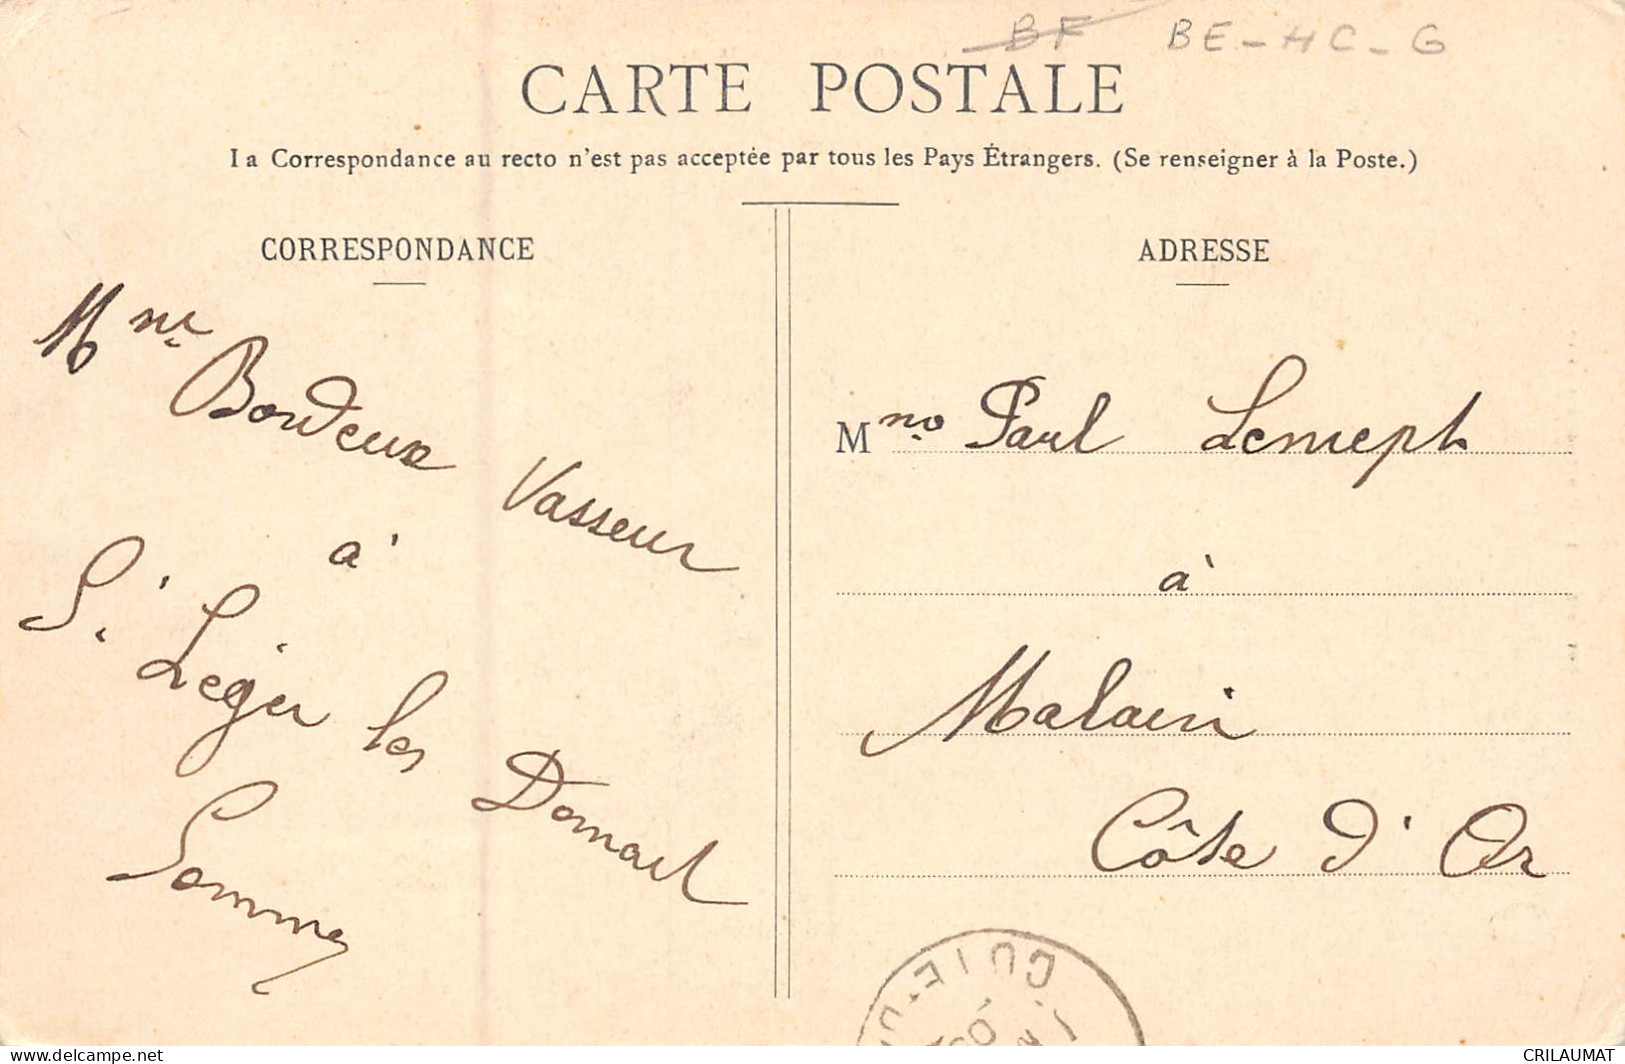 BF BE-HC-G
CARTE POSTALE
La Correspondance au recto n'est pas acceptée par tous les Pays Étrangers. (Se renseigner à la Poste.)
CORRESPONDANCE
Mme Bordeux Vasseur
à
St. Léger les Domart
Somme
ADRESSE
Mme Paul
à
Malain
Côte d'Or
CRILAUMAT